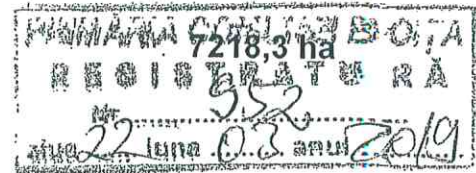 PRIMĂRIA
7218,3 ha
REGISTRATURĂ
Nr. 952
ziua 22 luna 03 anul 2019